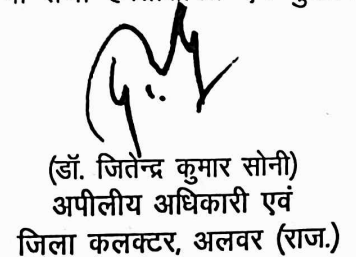 (डॉ. जितेन्द्र कुमार सोनी)
अपीलीय अधिकारी एवं
जिला कलक्टर, अलवर (राज.)